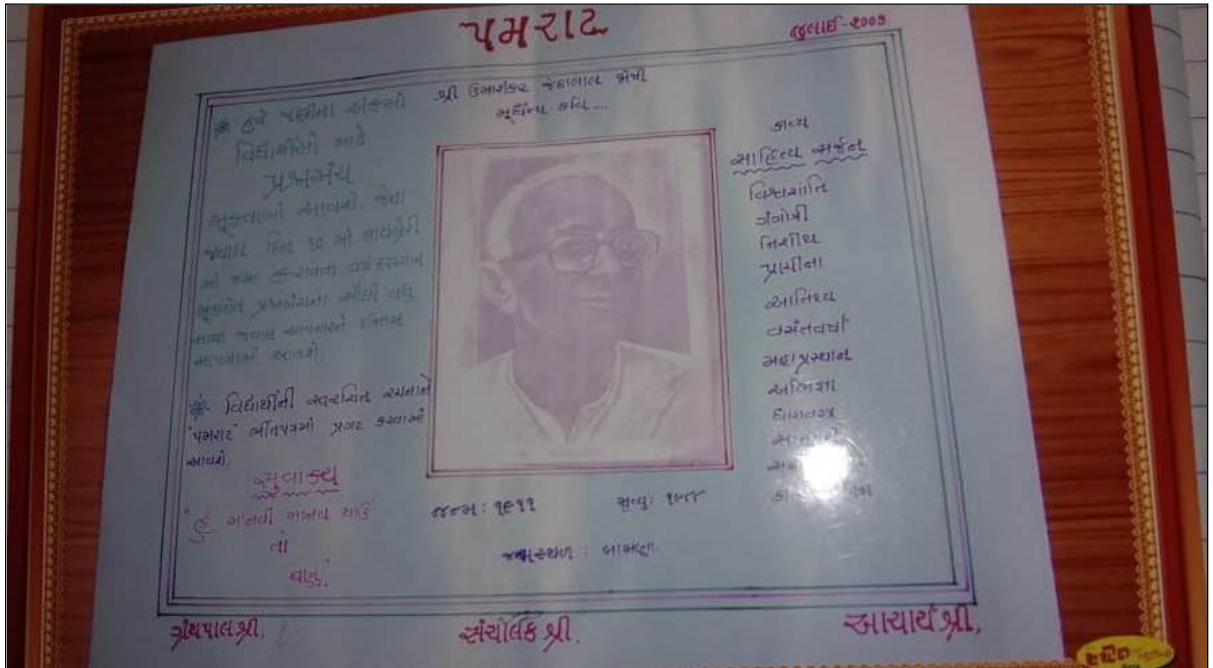 પમરાટ
જુલાઈ-૨૦૦૩
શ્રી ઉમાશંકર જેઠાલાલ જોષી
મૂર્ધન્ય કવિ...
* હવે પછીના અંકઓ
વિદ્યાર્થીઓ માટે
પ્રશ્નમંચ
મૂકવામાં આવશે. જેના
જવાબ દિન ૧૦ માં લાયબ્રેરી
માં જમા કરાવવા. વર્ષ દરમ્યાન
મૂકાયેલ પ્રશ્નમંચના સૌથી વધુ
સાચા જવાબ આપનારને ઈનામ
આપવામાં આવશે.
* વિદ્યાર્થીની સ્વરચિત રચનાને
'પમરાટ' ભીંતપત્રમાં પ્રગટ કરવામાં
આવશે.
સુવાક્ય
"હું માનવી માનવ થાઉં
તો
ઘણું."
જન્મ: ૧૯૧૧
મૃત્યુ: ૧૯૮૮
જન્મસ્થળ : બામણા
કાવ્ય
સાહિત્ય સર્જન
વિશ્વશાંતિ
ગંગોત્રી
નિશીથ
પ્રાચીના
આતિથ્ય
વસંતવર્ષા
મહાપ્રસ્થાન
અભિજ્ઞા
ધારાવસ્ત્ર
ગ્રંથપાલ શ્રી.
સંચાલક શ્રી.
આચાર્ય શ્રી.